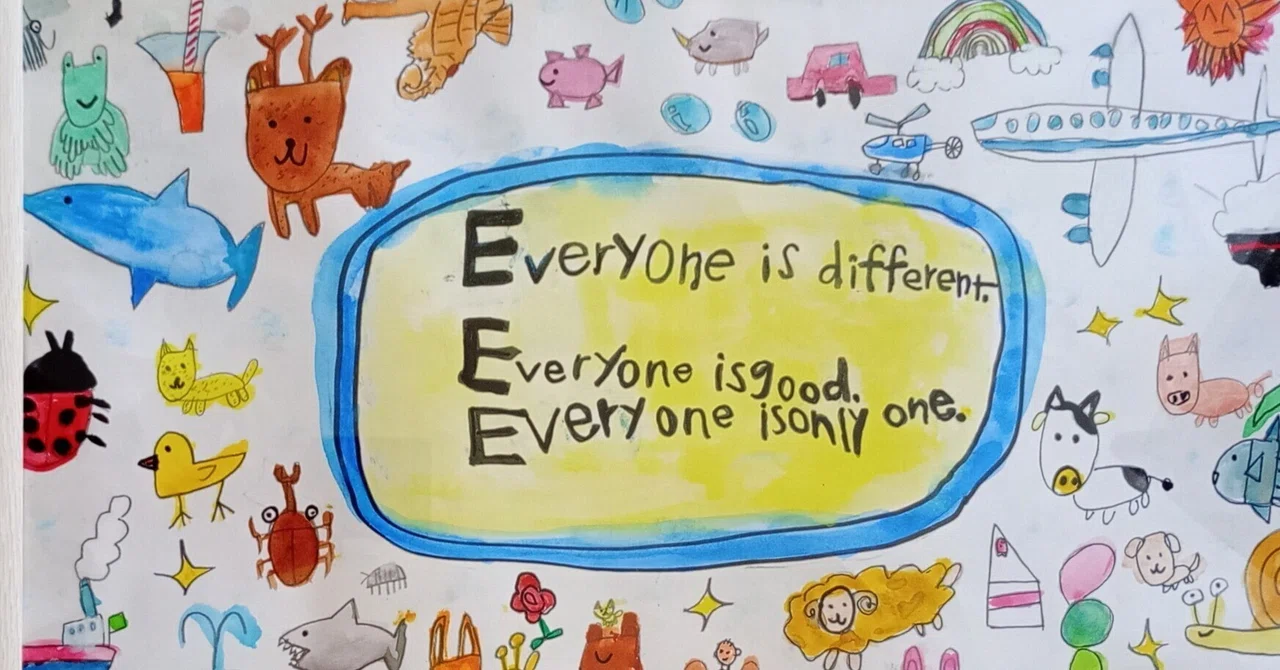 Everyone is different.
Everyone is good.
Everyone is only one.